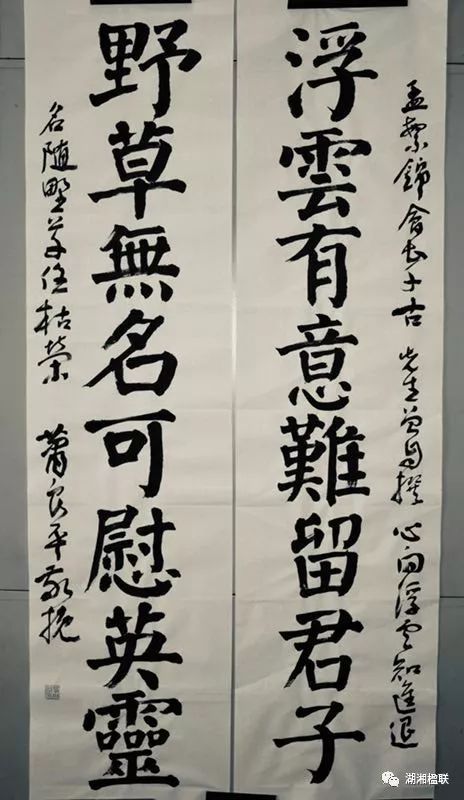 孟繁錦會長千古 先生曾自撰 心向浮雲知進退
浮雲有意難留君子
野草無名可慰英靈
名随野草任枯榮 蕭良平敬挽
湖湘楹联